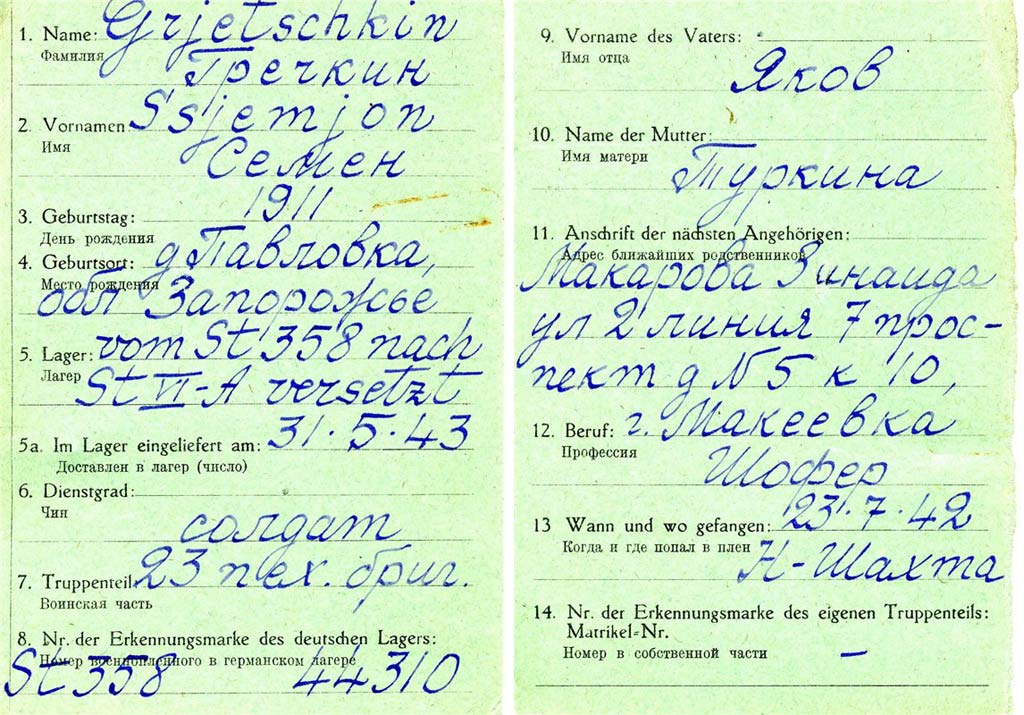 1. Name: Grjetschkin
Фамилия Гречкин
2. Vornamen Ssjemjon
Имя Семен
3. Geburtstag: 1911
День рождения
4. Geburtsort: д Павловка,
Место рождения
обл Запорожье
5. Lager: vom St 358 nach
Лагер St VI-A versetzt
5a. Im Lager eingeliefert am: 31.5.43
Доставлен в лагер (число)
6. Dienstgrad:
Чин солдат
7. Truppenteil: 23 пех. бриг.
Воинская часть
8. Nr. der Erkennungsmarke des deutschen Lagers:
Номер военнопленного в германском лагере
St 358 44310
9. Vorname des Vaters:
Имя отца Яков
10. Name der Mutter:
Имя матери Туркина
11. Anschrift der nächsten Angehörigen:
Адрес ближайших родственников
Макарова Зинаида
ул 2 линия 7 прос-
пект д N 5 к 10,
12. Beruf: г. Макеевка
Профессия Шофер
13 Wann und wo gefangen: 23.7.42
Когда и где попал в плен Н-Шахта
14. Nr. der Erkennungsmarke des eigenen Truppenteils:
Matrikel-Nr.
Номер в собственной части —